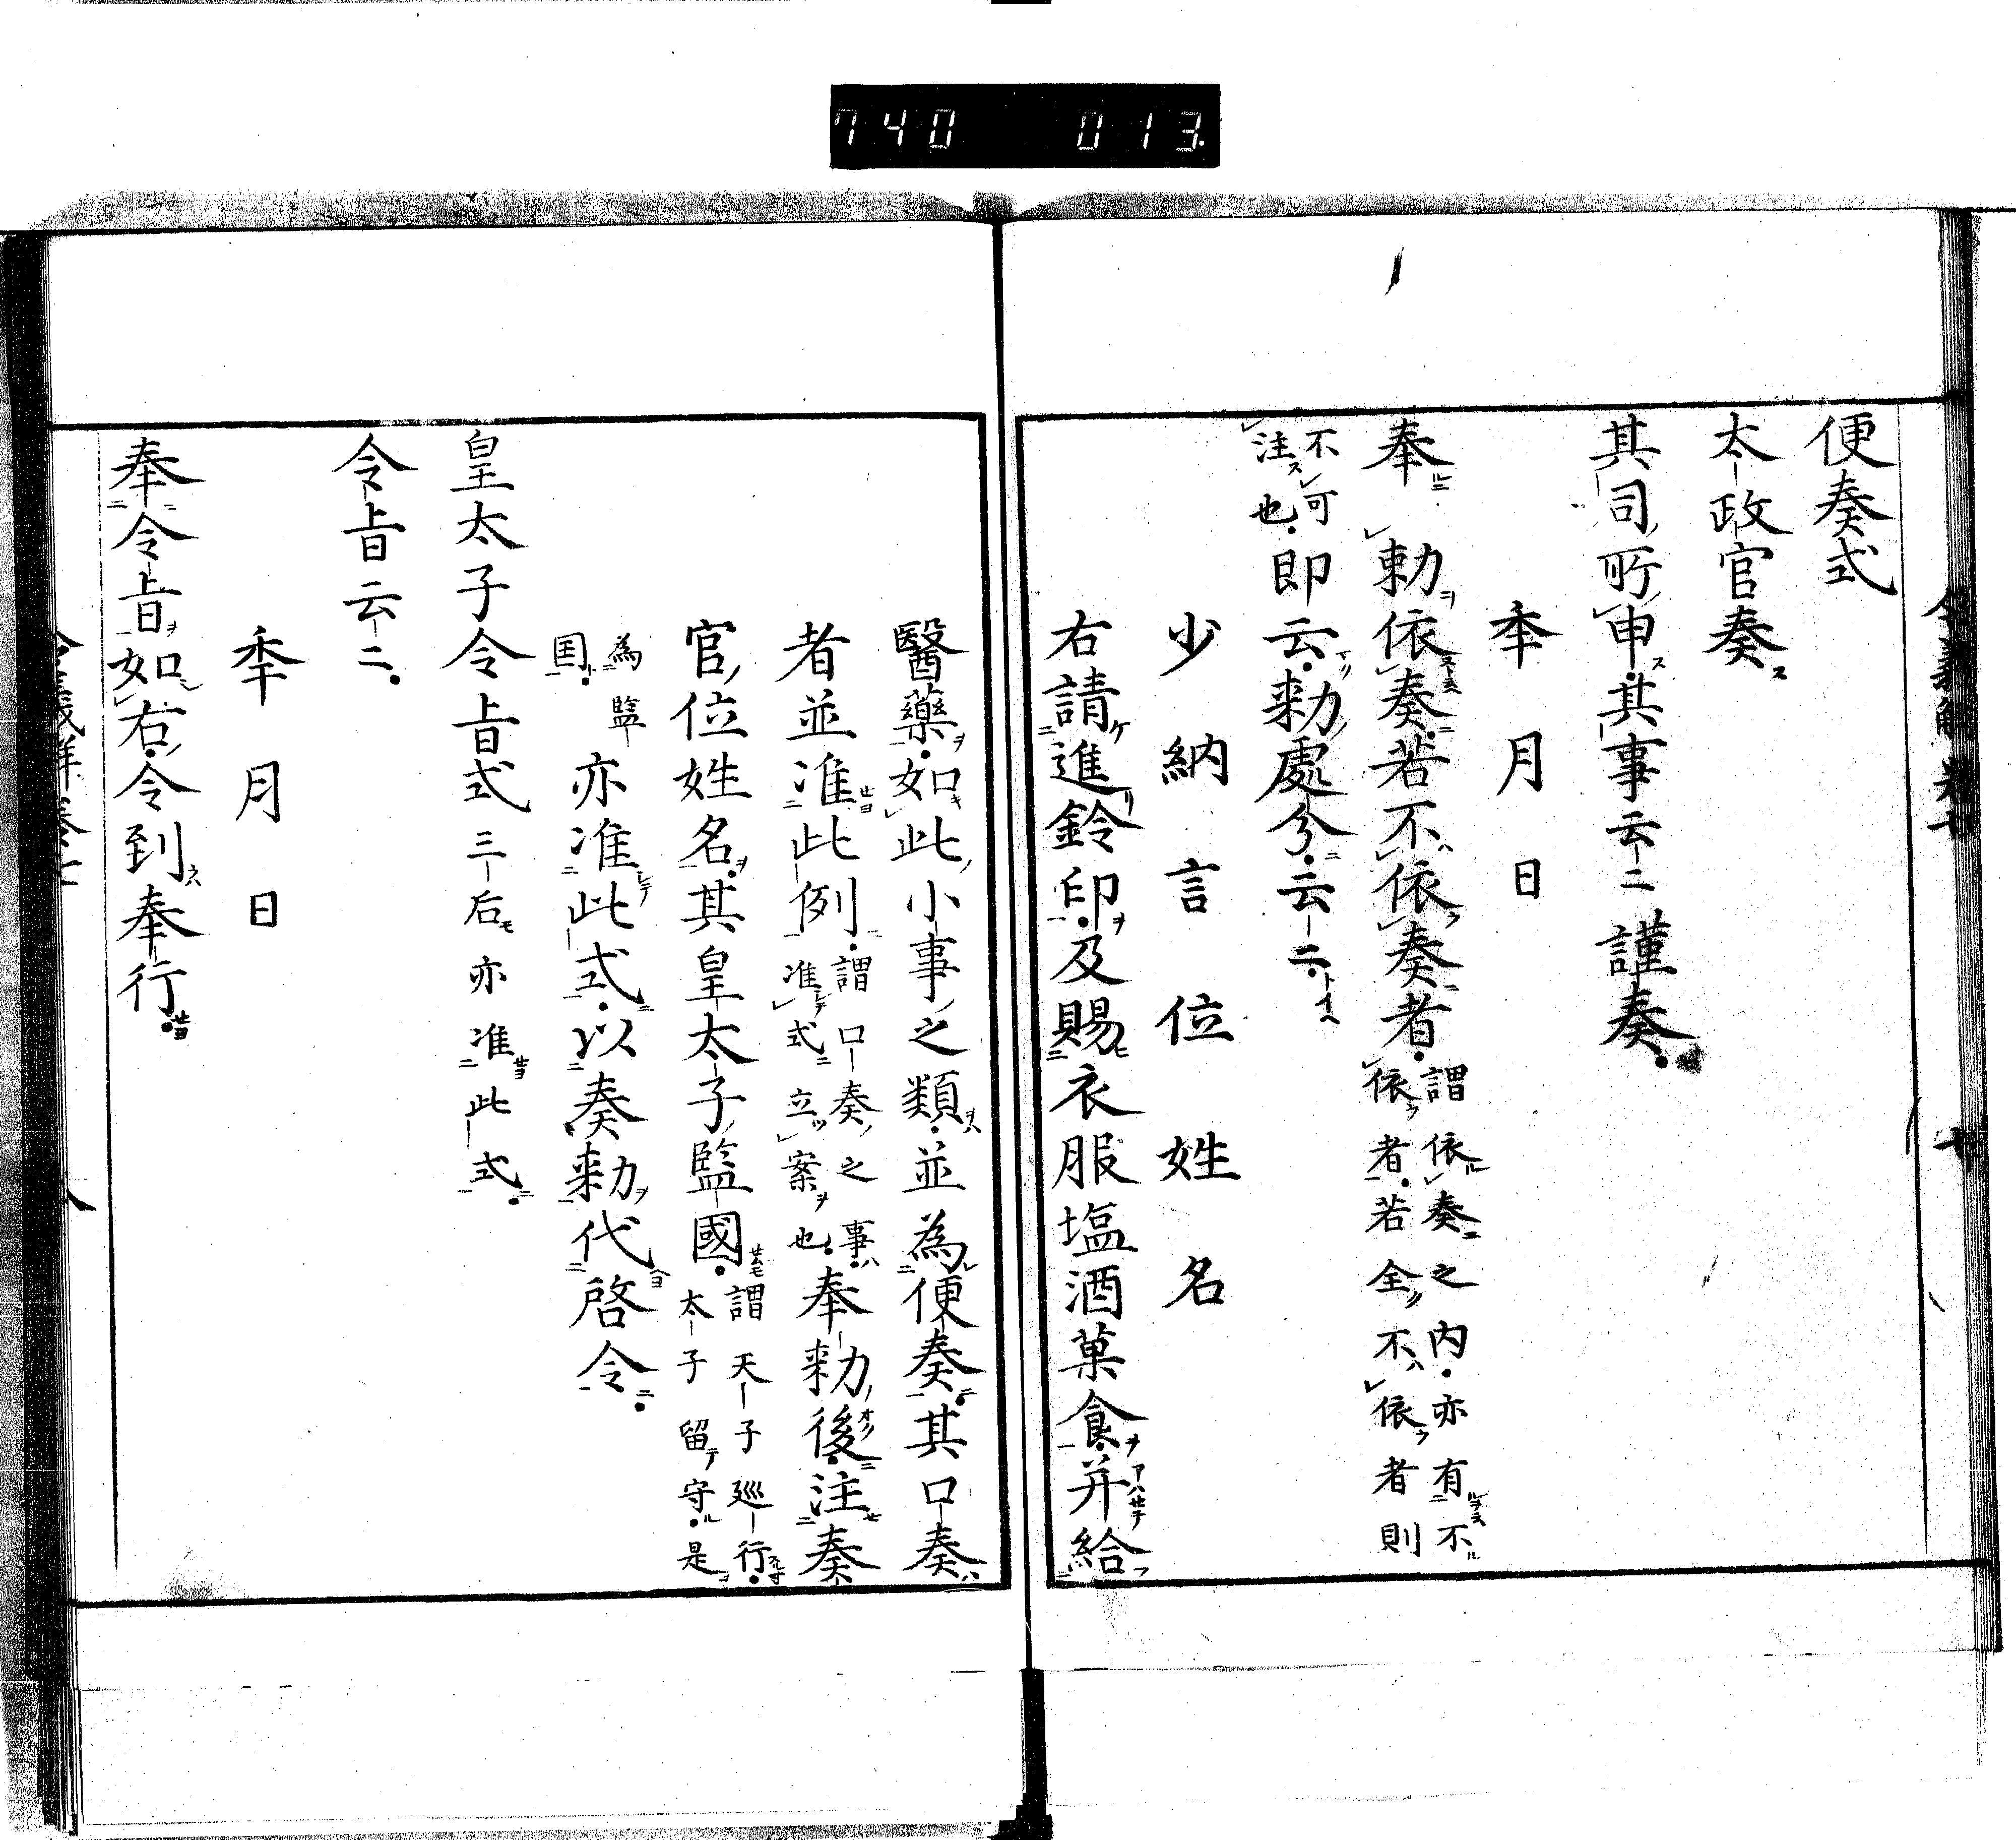 740 013
便奏式
太政官奏
其司所申其事云二謹奏
年月日
奉 勅依奏若不依奏者 謂依奏之內亦有不
依者若全不依者則
不可
注也 即云勅處分云二
少納言位姓名
右請進鈴印及賜衣服塩酒菓食并給
醫藥如此小事之類並為便奏其口奏
者並准此例 謂口奏之事
准式立案也 奉勅後注奏
官位姓名其皇太子監國 謂天子廵行
太子留守是
為監
国 亦准此式以奏勅代啓令
皇太子令旨式 三后亦准此式
令旨云二
年月日
奉令旨如右令到奉行